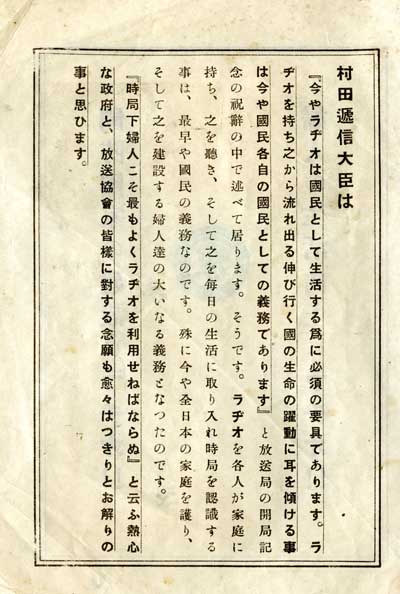 村田遞信大臣は
『今やラヂオは國民として生活する爲に必須の要具であります。ラ
ヂオを持ち之から流れ出る伸び行く國の生命の躍動に耳を傾ける事
は今や國民各自の國民としての義務であります』と放送局の開局記
念の祝辭の中で述べて居ります。そうです。ラヂオを各人が家庭に
持ち、之を聽き、そして之を毎日の生活に取り入れ時局を認識する
事は、最早や國民の義務なのです。殊に今や全日本の家庭を護り、
そして之を建設する婦人達の大いなる義務となつたのです。
『時局下婦人こそ最もよくラヂオを利用せねばならぬ』と云ふ熱心
な政府と、放送協會の皆樣に對する念願も愈々はつきりとお解りの
事と思ひます。